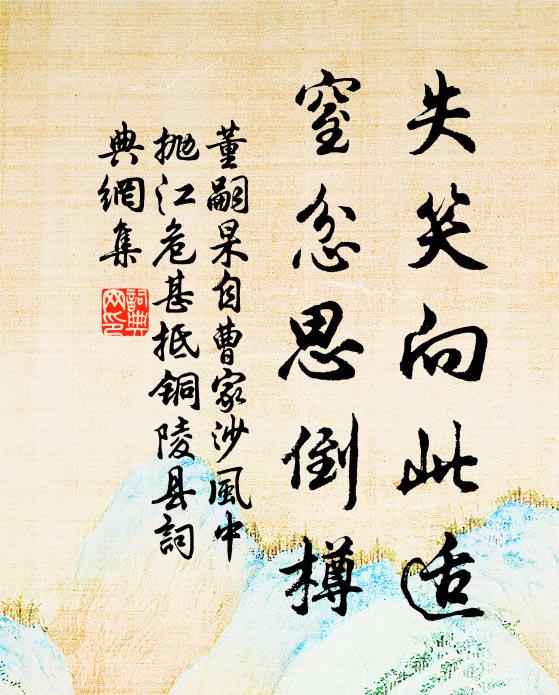 失笑向此适
窒忿思倒樽
董嗣杲自曹家沙風中
抛江危甚抵铜陵县詞
典網集
詞典
网印